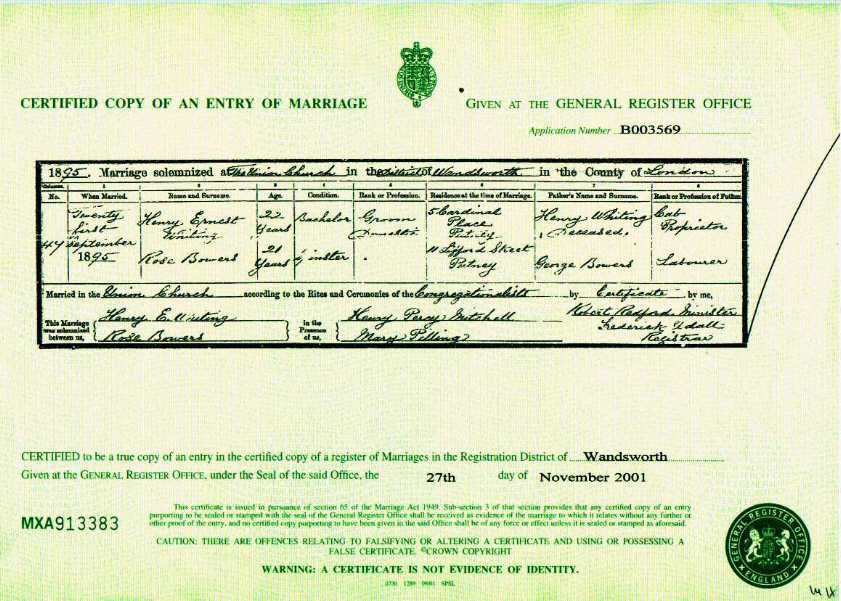 CERTIFIED COPY OF AN ENTRY OF MARRIAGE
GIVEN AT THE GENERAL REGISTER OFFICE
Application Number B003569
1895. Marriage solemnized at The Union Church in the District of Wandsworth in the County of London
Columns. 1 2 3 4 5 6 7 8
No. When Married. Name and Surname. Age. Condition. Rank or Profession. Residence at the time of Marriage. Father's Name and Surname. Rank or Profession of Father.
Twenty first September 1895
Henry Ernest Whiting 22 Years Bachelor Groom 5 Cardinal Place Putney Henry Whiting Deceased. Cab Proprietor
Rose Bowers 21 Years Spinster Street Putney George Bowers Labourer
Married in the Union Church according to the Rites and Ceremonies of the Congregationalists by Certificate by me,
This Marriage was solemnized between us, Henry E. Whiting Rose Bowers in the Presence of us, Henry Percy Mitchell Mary Pilling Robert Redford Minister Frederick Udall Registrar
CERTIFIED to be a true copy of an entry in the certified copy of a register of Marriages in the Registration District of Wandsworth
Given at the GENERAL REGISTER OFFICE, under the Seal of the said Office, the 27th day of November 2001
MXA913383
This certificate is issued in pursuance of section 65 of the Marriage Act 1949. Sub-section 3 of that section provides that any certified copy of an entry
purporting to be sealed or stamped with the seal of the General Register Office shall be received as evidence of the marriage to which it relates without any further or
other proof of the entry, and no certified copy purporting to have been given in the said Office shall be of any force or effect unless it is sealed or stamped as aforesaid.
CAUTION: THERE ARE OFFENCES RELATING TO FALSIFYING OR ALTERING A CERTIFICATE AND USING OR POSSESSING A
FALSE CERTIFICATE. ©CROWN COPYRIGHT
WARNING: A CERTIFICATE IS NOT EVIDENCE OF IDENTITY.
GENERAL REGISTER OFFICE
ENGLAND